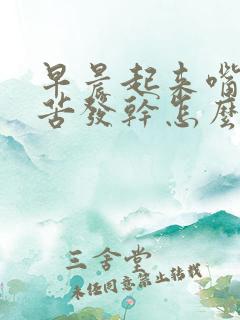 早晨起来嘴
苦發幹怎麼
三舍堂
未经同意禁止转载